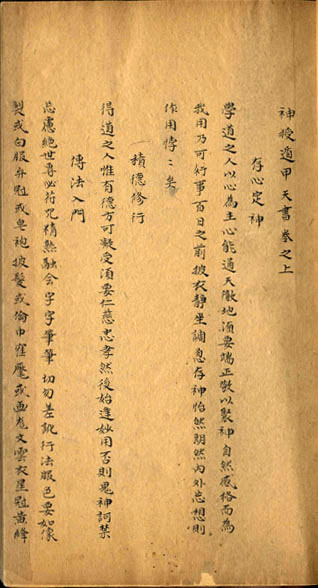 神授遁甲天書卷之上
存心定神
學道之人以心為主心能通天徹地須要端正嚴以聚神自然感格而為
我用乃可行事百日之前披衣靜坐調息存神怡然朗然內外忘想則
作用悖〻矣
積德修行
得道之人惟有德方可凝受須要仁慈忠孝然後始達妙用否則鬼神訶禁
傳法入門
忘慮絕世專必符咒精熟融會字字筆筆切勿差訛行法服色要如像
製或白服弁冠或皂袍披髮或綸巾鶴氅或畫卷文雲衣星冠黃絳